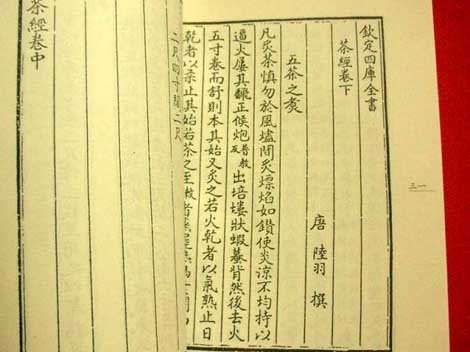 欽定四庫全書
茶經卷下
唐 陸羽 撰
五茶之煑
凡炙茶慎勿於風爐間炙熛焰如鑽使炎涼不均持以
逼火屢其飜正候炮普教反出培塿狀蝦蟇背然後去火
五寸卷而舒則本其始又炙之若火乾者以氣熱止日
乾者以柔止其始若茶之至嫩者
二尺四寸闊二尺
茶經卷中